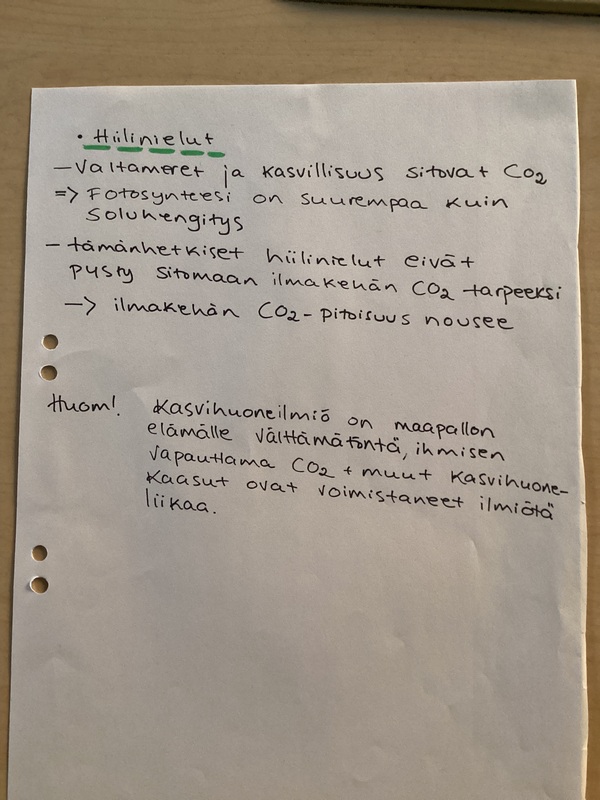 • Hiilinielut
– Valtameret ja kasvillisuus sitovat CO₂
=> Fotosynteesi on suurempaa kuin
soluhengitys
– tämänhetkiset hiilinielut eivät
pysty sitomaan ilmakehän CO₂ tarpeeksi
–> ilmakehän CO₂-pitoisuus nousee
Huom!. Kasvihuoneilmiö on maapallon
elämälle välttämätöntä, ihmisen
vapauttama CO₂ + muut kasvihuone-
kaasut ovat voimistaneet ilmiötä
liikaa.